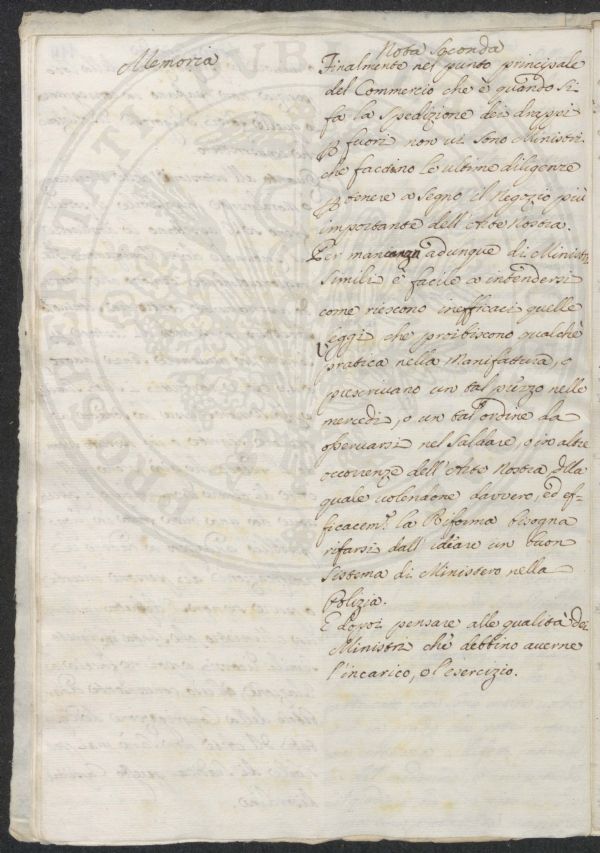 Memoria
Nota Seconda
Finalmente nel punto principale
del Commercio che è quando si
fa la spedizione dei drappi
p fuori non vi sono Ministri
che faccino le ultime diligenze
p tenere a segno il negozio più
importante dell'Arte Nostra.
Per mancanza adunque di Ministri
simili è facile a intendersi
come riescono inefficaci quelle
leggi che proibiscono qualche
pratica nella Manifattura, o
prescrivano un tal prezzo nelle
mercedi, o un tal ordine da
osservarsi nel Saldare, o in altre
occorrenze dell'Arte Nostra della
quale volendone davvero, ed ef-
ficacem.e la Riforma bisogna
rifarsi dall'ideare un buon
sistema di Ministero nella
Polizia.
E dopoi pensare alle qualità dei
Ministri che debbino averne
l'incarico, e l'esercizio.